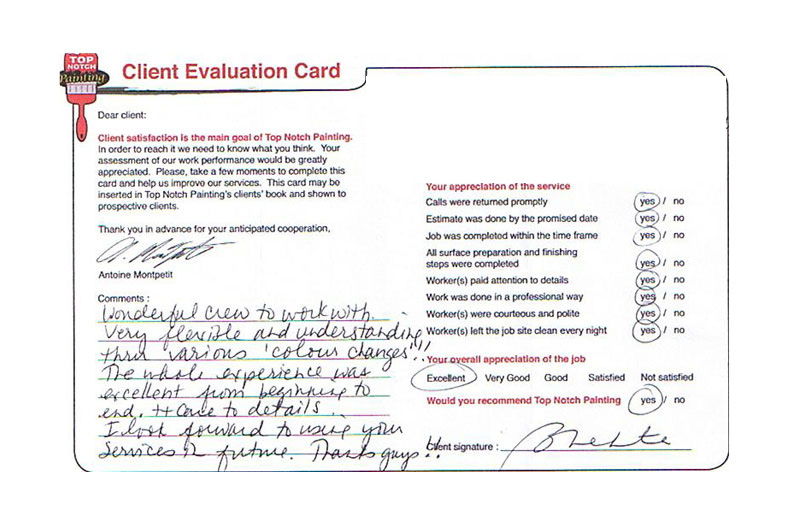 TOP
NOTCH
Painting
Client Evaluation Card
Dear client:
Client satisfaction is the main goal of Top Notch Painting.
In order to reach it we need to know what you think. Your
assessment of our work performance would be greatly
appreciated. Please, take a few moments to complete this
card and help us improve our services. This card may be
inserted in Top Notch Painting's clients' book and shown to
prospective clients.
Thank you in advance for your anticipated cooperation,
Antoine Montpetit
Comments :
Wonderful crew to work with.
Very flexible and understanding
thru various 'colour changes'!!
The whole experience was
excellent from beginning to
end. ++ Care to details.
I look forward to using your
services in future. Thanks guys!!
Your appreciation of the service
Calls were returned promptly yes / no
Estimate was done by the promised date yes / no
Job was completed within the time frame yes / no
All surface preparation and finishing
steps were completed yes / no
Worker(s) paid attention to details yes / no
Work was done in a professional way yes / no
Worker(s) were courteous and polite yes / no
Worker(s) left the job site clean every night yes / no
Your overall appreciation of the job
Excellent Very Good Good Satisfied Not satisfied
Would you recommend Top Notch Painting yes / no
Client signature :